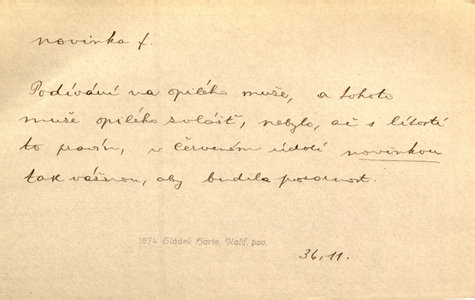 novinka f.
Podívání na opilého muže, a tohoto
muže opilého zvlášť, nebylo, ač s lítostí
to pravím, v Červeném údolí novinkou
tak vážnou, aby budila pozornost.
1874 Sládek, Harte, Kalif. pov.
36, 11.